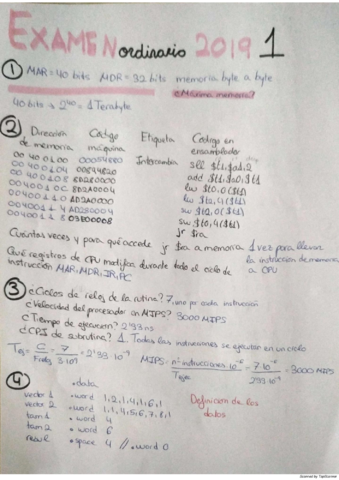 EXAMEN ordinario 2019 1
① MAR=40 bits MDR=32 bits memoria byte a byte
¿Máxima memoria?
40 bits → 2⁴⁰ = 1 Terabyte
② Dirección Código Etiqueta Código en
de memoria máquina ensamblador
00 40 01 00 00054880 Intercambia sll $t1,$a1,2
00 40 01 04 add $t1,$a0,$t1
00 40 01 08 8D280000 lw $t0,0($t1)
00 40 01 0C 8D2A0004 lw $t2,4($t1)
00 40 01 1 0 AD2A0000 sw $t2,0($t1)
00 40 01 1 4 AD280004 sw $t0,4($t1)
00 40 01 1 8 03E00008 jr $ra
Cuántas veces y para qué accede jr $ra a memoria 1 vez para llevar
la instrucción de memoria
Qué registros de CPU modifica durante todo el ciclo de a CPU
instrucción MAR, MDR, IR, PC
③ ¿Ciclos de reloj de la rutina? 7, uno por cada instrucción
¿Velocidad del procesador en MIPS? 3000 MIPS
¿Tiempo de ejecución? 2'33 ns
¿CPI de subrutina? 1. Todas las instrucciones se ejecutan en un ciclo
Teje = C / Freloj = 7 / 3·10⁹ = 2'33·10⁻⁹ MIPS = nº instrucciones·10⁻⁶ / Teje = 7·10⁻⁶ / 2'33·10⁻⁹ = 3000 MIPS
④ .data
vector 1 .word 1,2,1,4,1,6,1 Definición de los
vector 2 .word 1,1,4,5,6,7,8,1 datos
tam 1 .word 4
tam 2 .word 6
.space 4 // .word 0